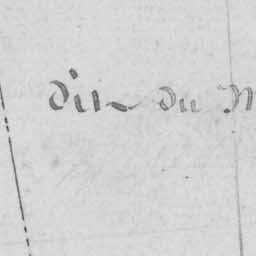 dit du M